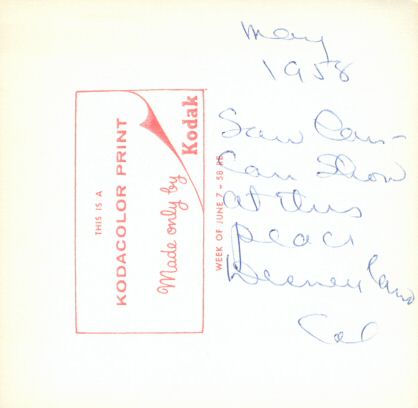 May
1958
Saw Can-
Can Show
at this
peace
Disneyland
Cal
THIS IS A
KODACOLOR PRINT
Made only by
Kodak
WEEK OF JUNE 7 - 58